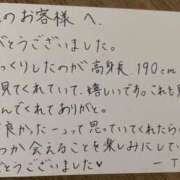 のお客様へ.
がとうございました。
っくりしたのが高身長.190cm
見てくれていて、嬉しいです。これも
んでくれてありがと。
良かたーって思っていてくれたら
っか会えることを楽しみにしてい
とうございました♥
ーT